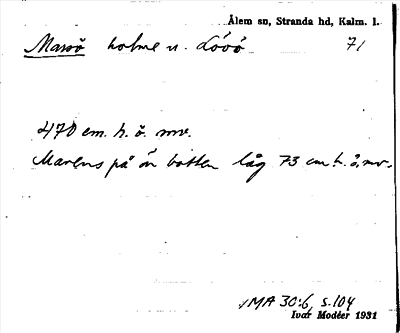 Ålem sn, Stranda hd, Kalm. l.
Marsö holme n. Lövö 71
470 cm. h. ö. mv.
Marens på ön botten låg 73 cm h. ö. mv.
MA 30:6, s. 104
Ivar Modéer 1931